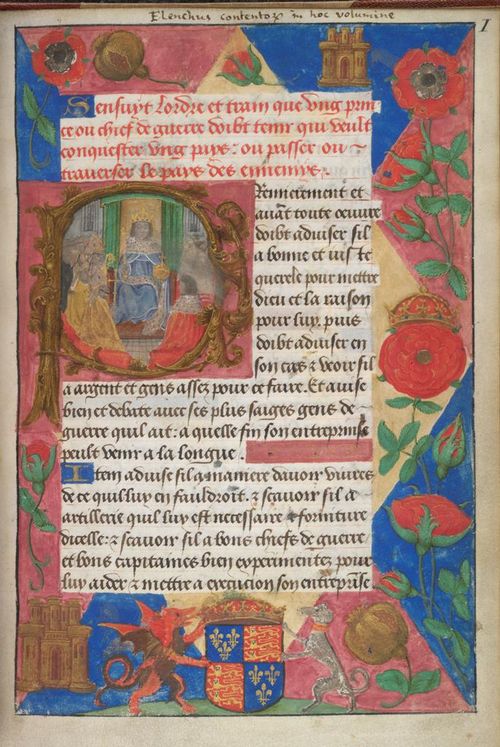 Elenchus contentoꝝ in hoc volumine
1
Sensuyt lordre et train que vng prin
ce ou chief de guerre doibt tenir qui veult
conquester vng pays: ou passer ou
trauerser le pays des ennemys.
Premierement et
auãt toute oeuure
doibt aduiser sil
a bonne et iuste
querele pour mettre
dieu et la raison
pour luy. puis
doibt aduiser en
son cas & veoir sil
a argent et gens assez pour ce faire. Et auise
bien et debate auec ses plus saiges gens de
guerre quil ait: a quelle fin son entreprinse
peult venir a la longue.
Item aduise sil a maniere dauoir viures
de ce quil luy en fauldroit. & scauoir sil a
artillerie quil luy est necessaire & forniture
dicelle: & scauoir sil a bons chiefs de guerre,
et bons capitaines bien experimentez pour
luy aider & mettre a execucion son entreprise